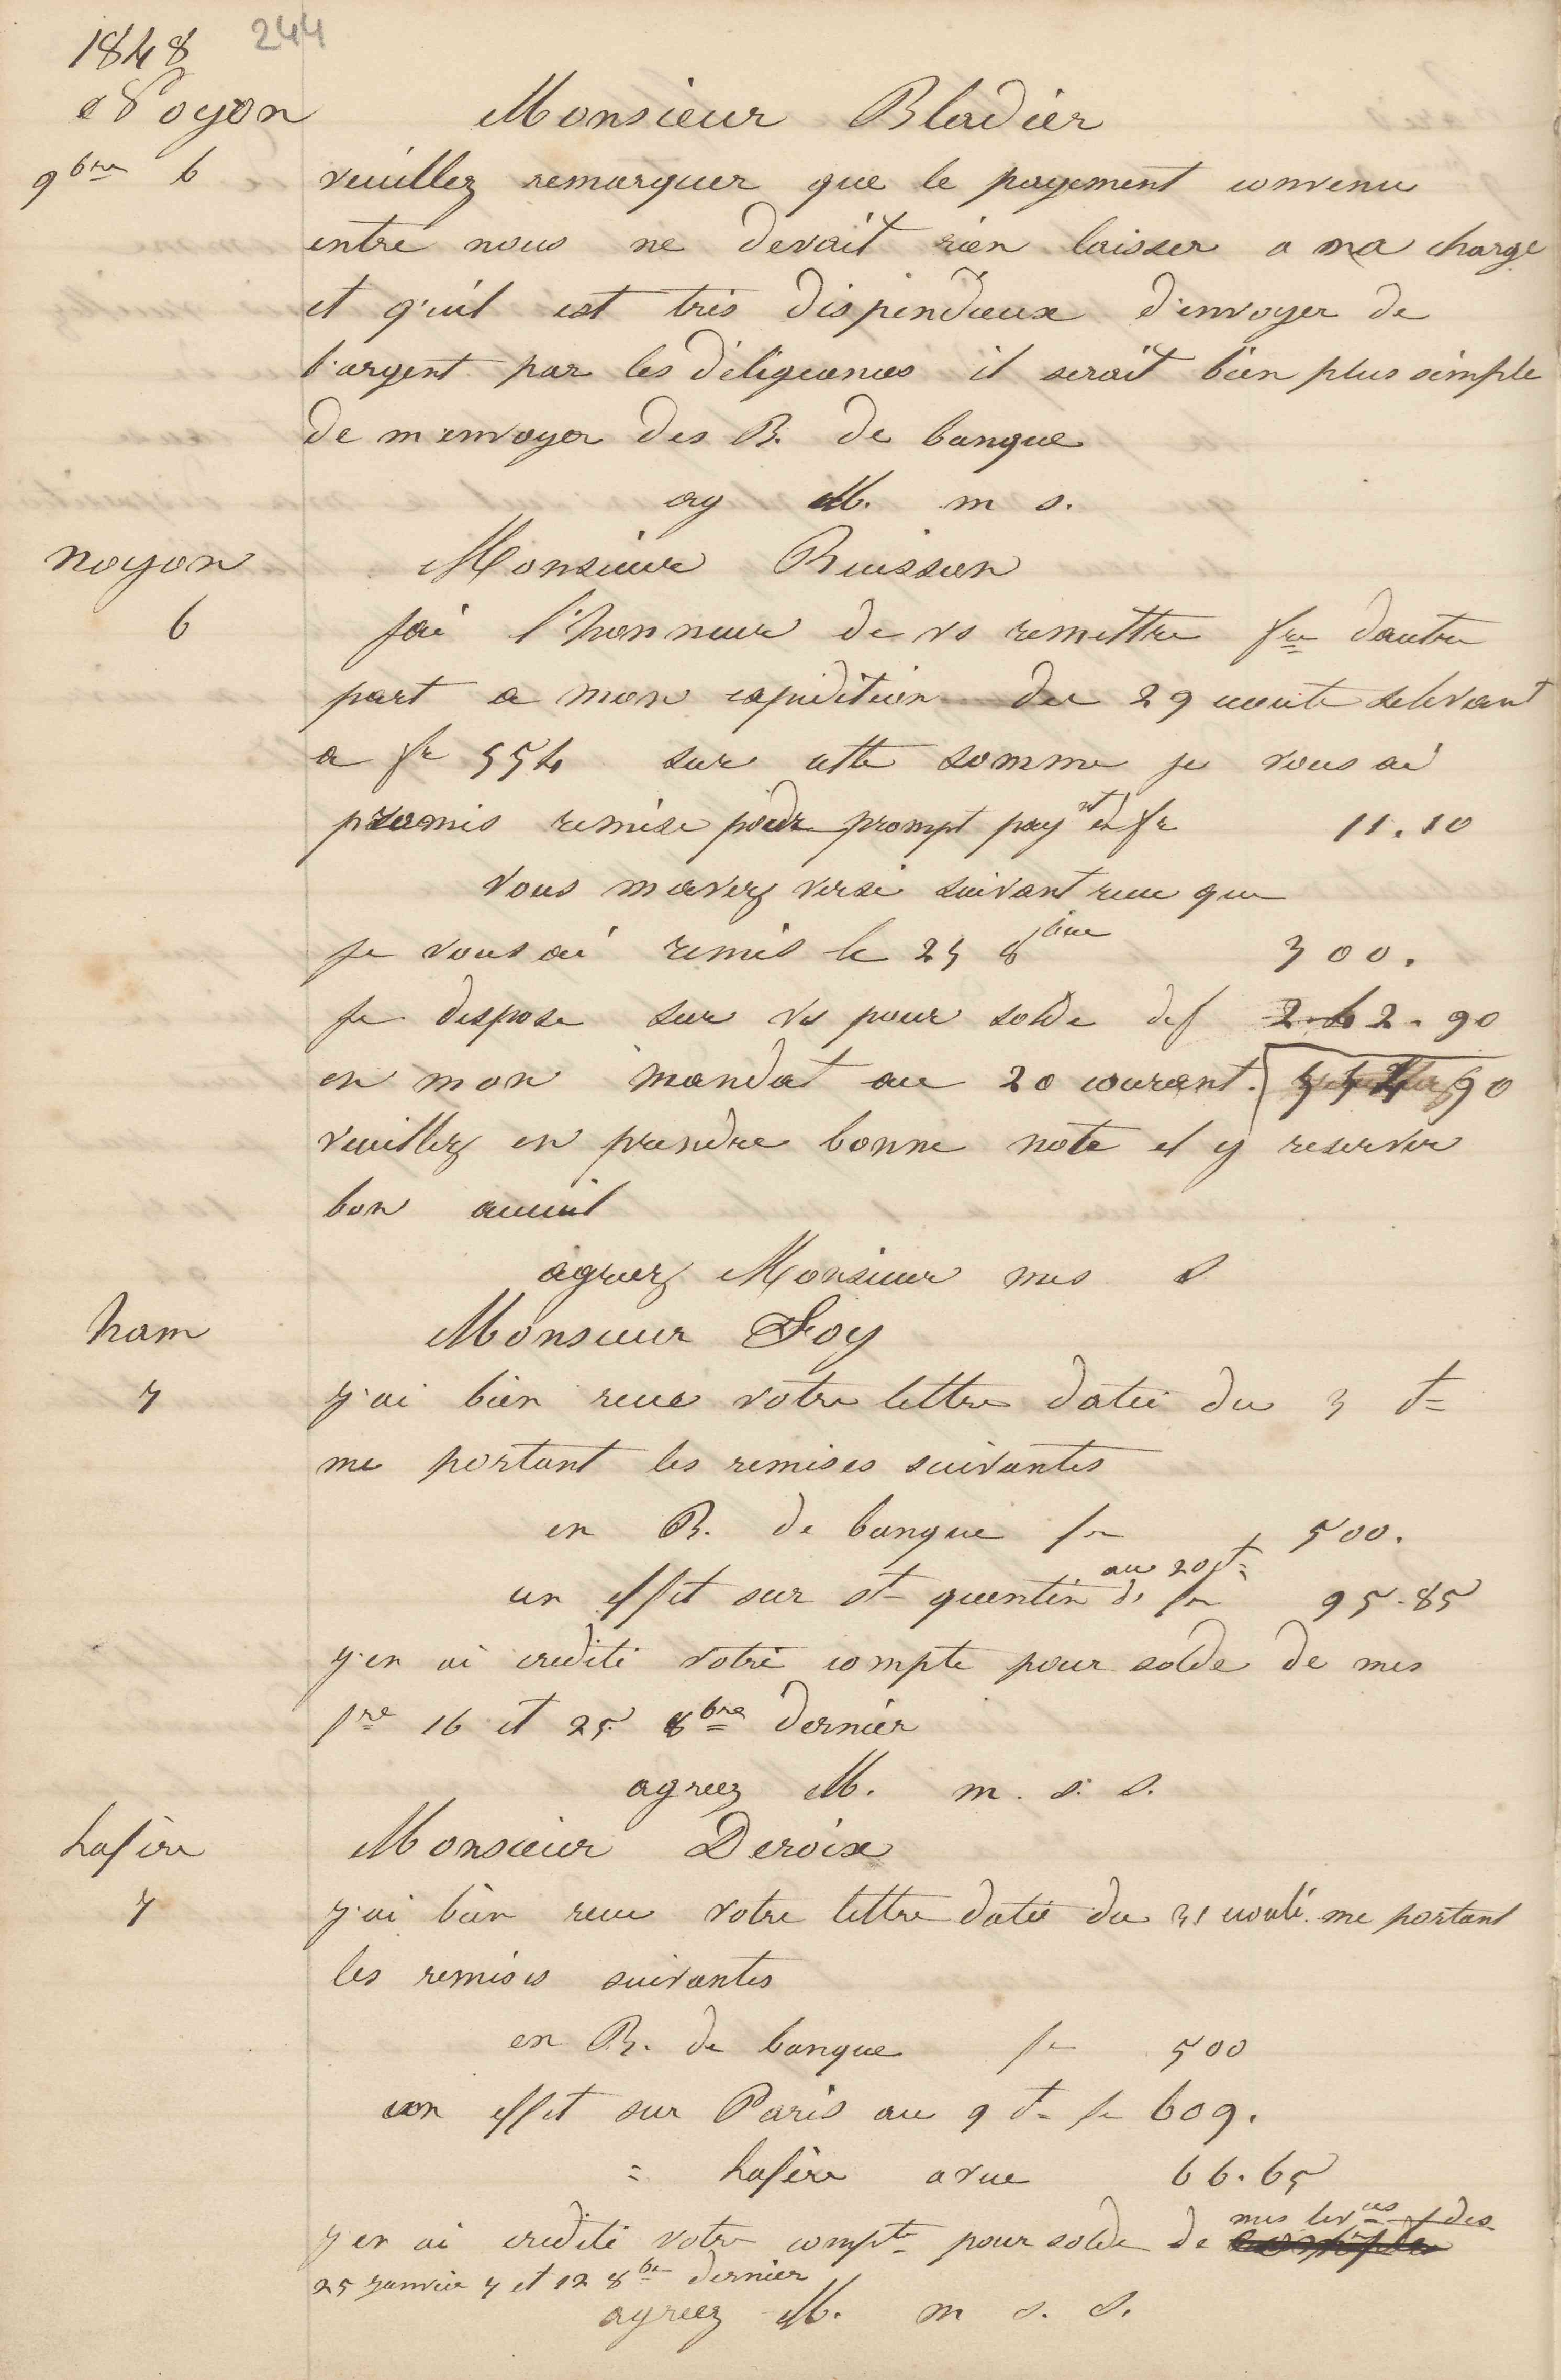 1848 244
Noyon Monsieur Bladier
9bre 6 veuillez remarquer que le payement convenu
entre nous ne devait rien laisser a ma charge
et q'uil est très dispendieux d'envoyer de
l'argent par les diligeances il serait bien plus simple
de menvoyer des B. de banque
ag M. m s.
noyon Monsieur Buisson
6 jai l'honneur de vs remettre fre dautre
part a mon expedition du 29 ecoulé selevant
a fr 554 sur cette somme je vous ai
promis remise pour prompt payt de fr 11.10
vous mavez versé suivant recu que
je vous ai remis le 25 8bre 300.
je dispose sur vs pour solde de f 242.90
en mon mandat au 20 courant. 90
veuillez en prendre bonne note et y reserver
bon acceuil
agreez Monsieur mes s
ham Monsieur Foy
7 j'ai bien recue votre lettre datée du 3 ct
me portant les remises suivantes
en B. de banque fr 500.
au 20 ct
un effet sur st quentin de fr 95.85
j'en ai credité votre compte pour solde de mes
fre 16 et 25 8bre dernier
agreez M. m. s. s.
Lafère Monsieur Deroix
7 j'ai bien recue votre lettre datée du 31 ecoulé me portant
les remises suivantes
en B. de banque fr 500
un effet sur Paris au 9 ct fr 609.
= Lafère a vue 66.65
mes livces des
j'en ai credité votre compte pour solde de compte
25 janvier 7 et 12 8bre dernier
agreez M. m s. s.